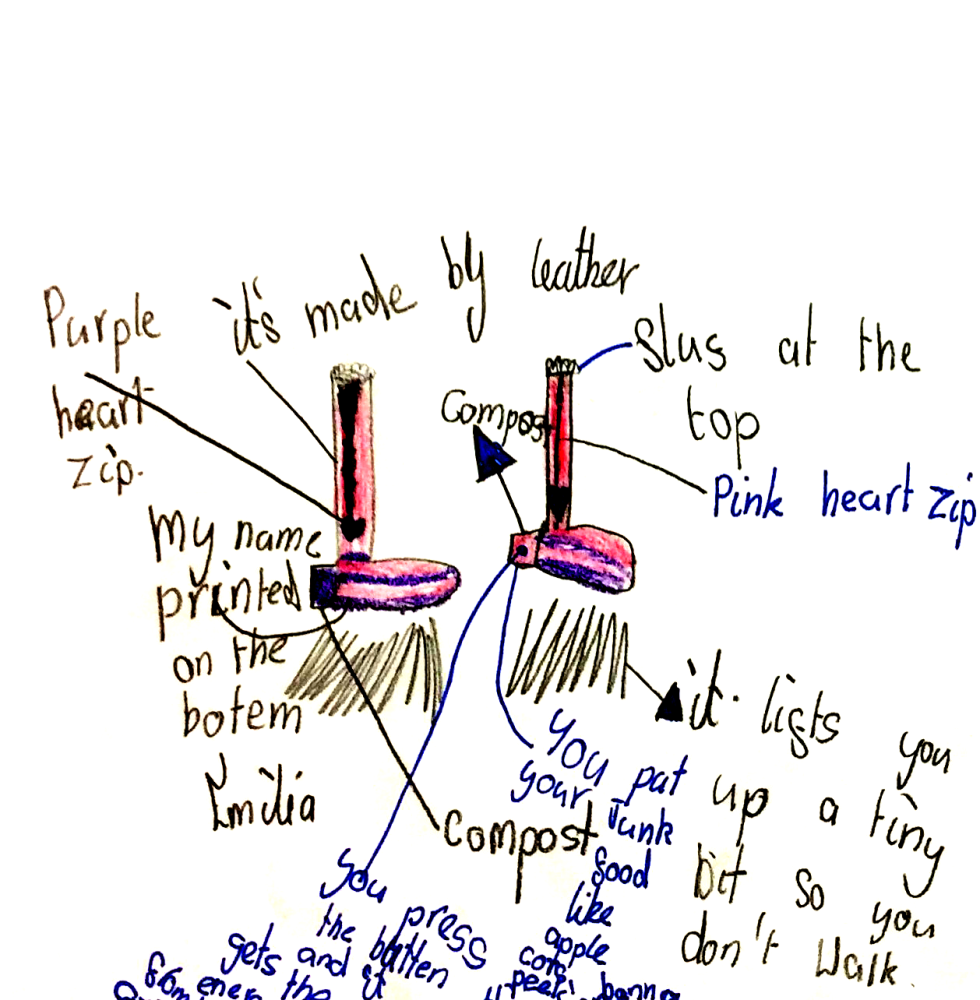 it's made by leather
Purple
heart
zip.
Slus at the
top
Compost
Pink heart zip
My name
printed
on the
botem
Emilia
it lists you
up a tiny
bit so you
don't walk.
Compost
You put
your Junk
food
like
apple
core
peel banna
you press
the batten
gets and it
from ener the